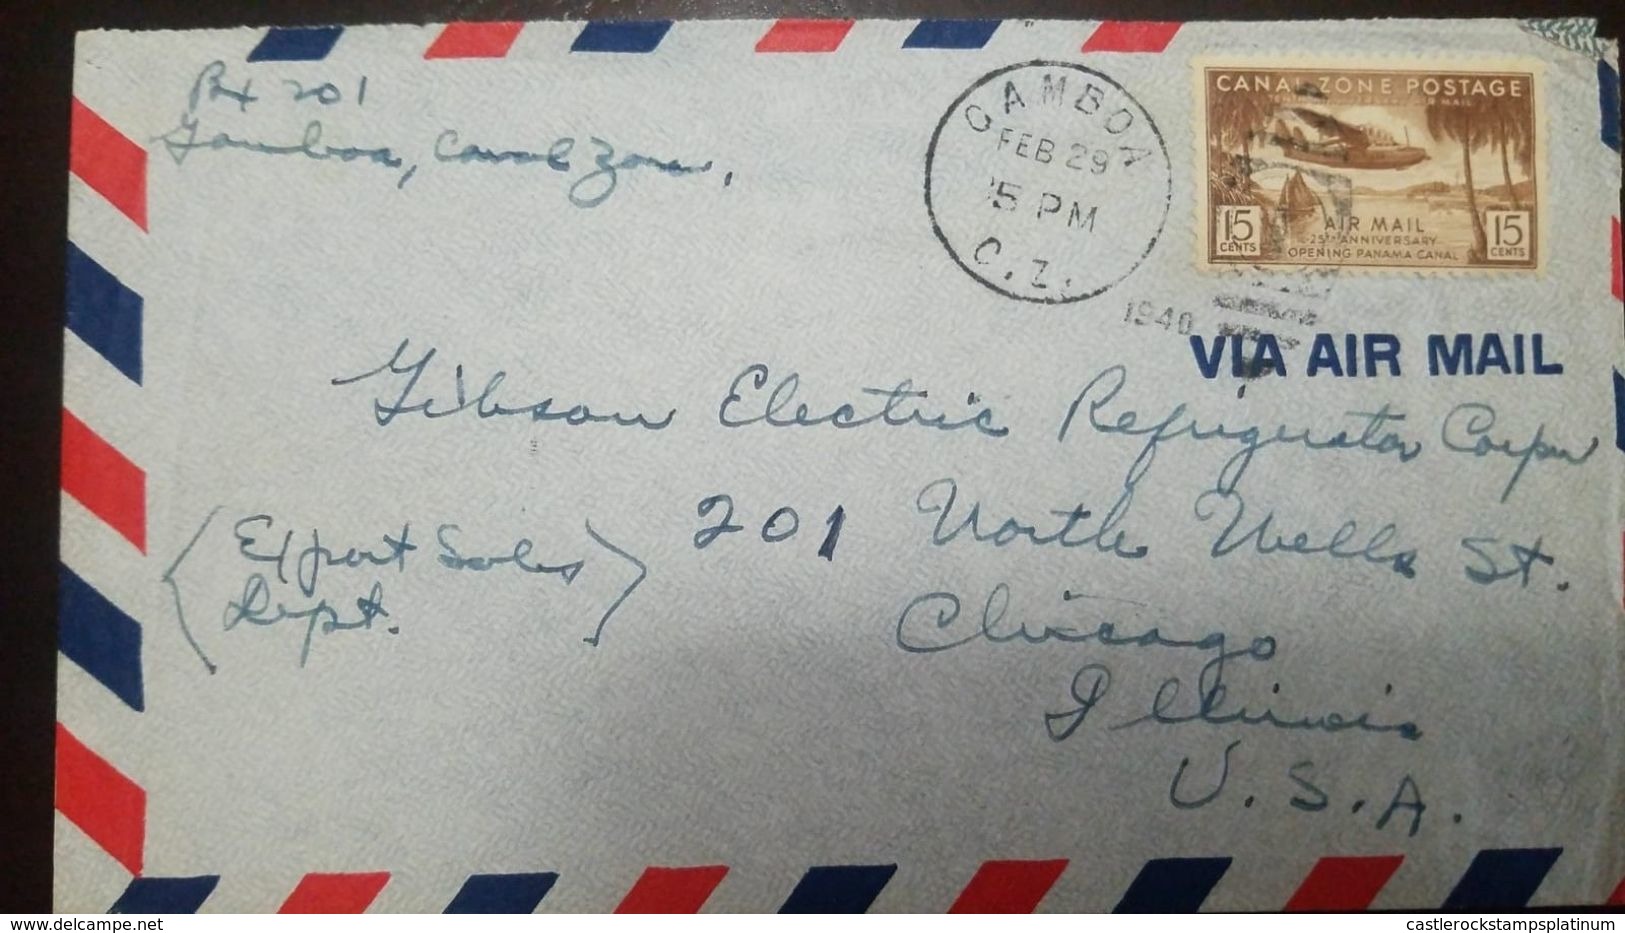 Bx 201
Gamboa, Canal Zone.
GAMBOA
FEB 29
5 PM
C.Z.
1940
CANAL ZONE POSTAGE
AIR MAIL
15 CENTS
AIR MAIL
25TH ANNIVERSARY
OPENING PANAMA CANAL
15 CENTS
VIA AIR MAIL
Gibson Electric Refrigerator Corpn
201 North Wells St.
(Export Sales
Dept.)
Chicago
Illinois
U.S.A.
delcampe.net
castlerockstampsplatinum